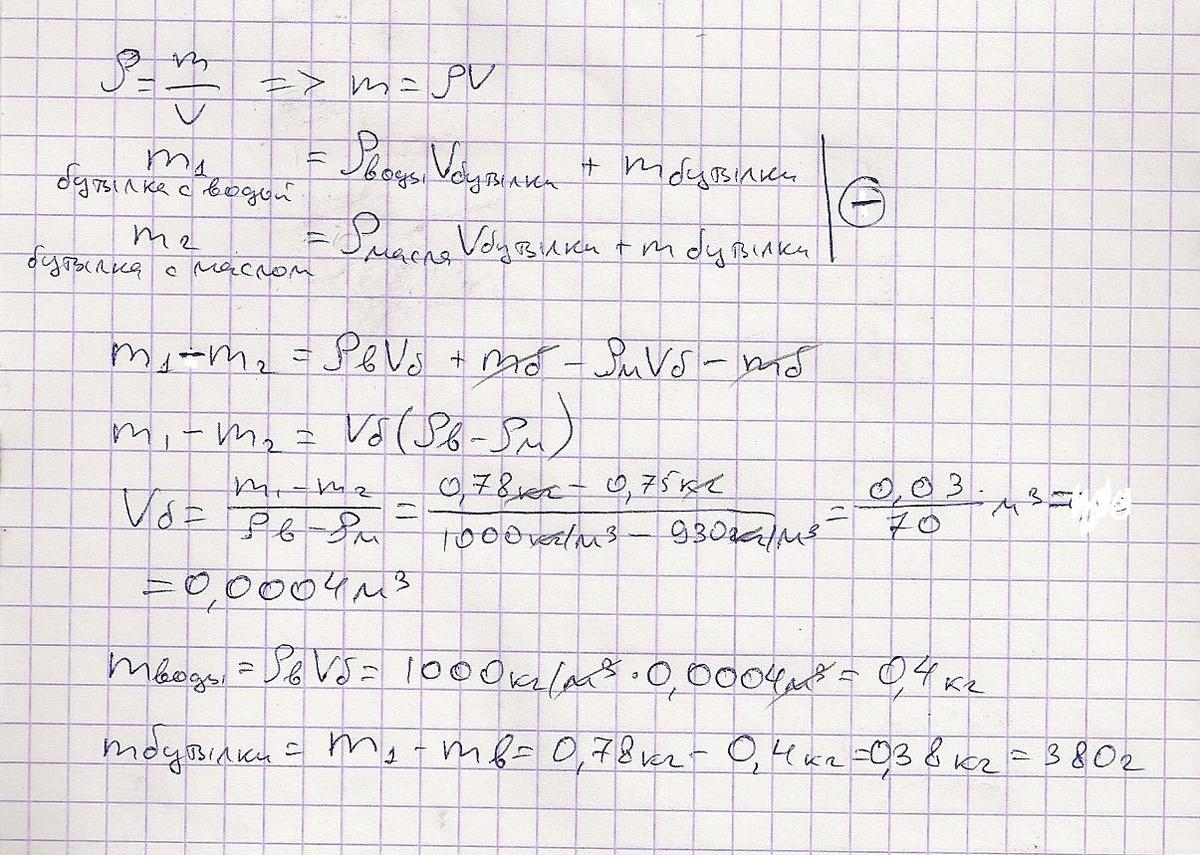 ρ = m/V => m = ρV
m₁ бутылка с водой = ρводы Vбутылки + mбутылки
m₂ бутылка с маслом = ρмасла Vбутылки + m бутылки ⊖
m₁ - m₂ = ρвVб + mб - ρмVб - mб
m₁ - m₂ = Vб(ρв - ρм)
Vб = (m₁ - m₂)/(ρв - ρм) = (0,78кг - 0,75кг)/(1000кг/м³ - 930кг/м³) = 0,03/70 · м³ =
= 0,0004м³
mводы = ρвVб = 1000кг/м³ · 0,0004м³ = 0,4кг
mбутылки = m₁ - mв = 0,78кг - 0,4кг = 0,38кг = 380г